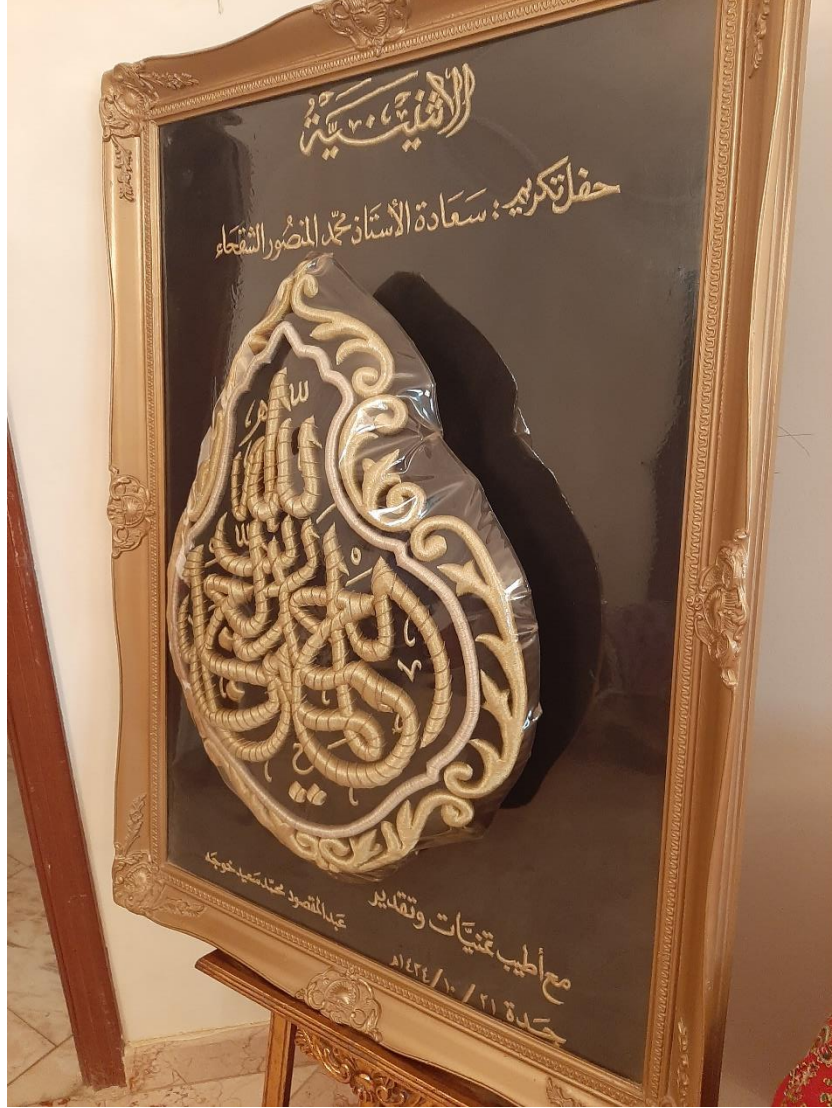 الاثنينية
حفل تكريم : سعادة الأستاذ محمد المنصور الشقحاء
الله
مع أطيب تمنيات وتقدير
عبد المقصود محمد سعيد خوجه
جدة ٢١ / ١٠ / ١٤٢٤هـ